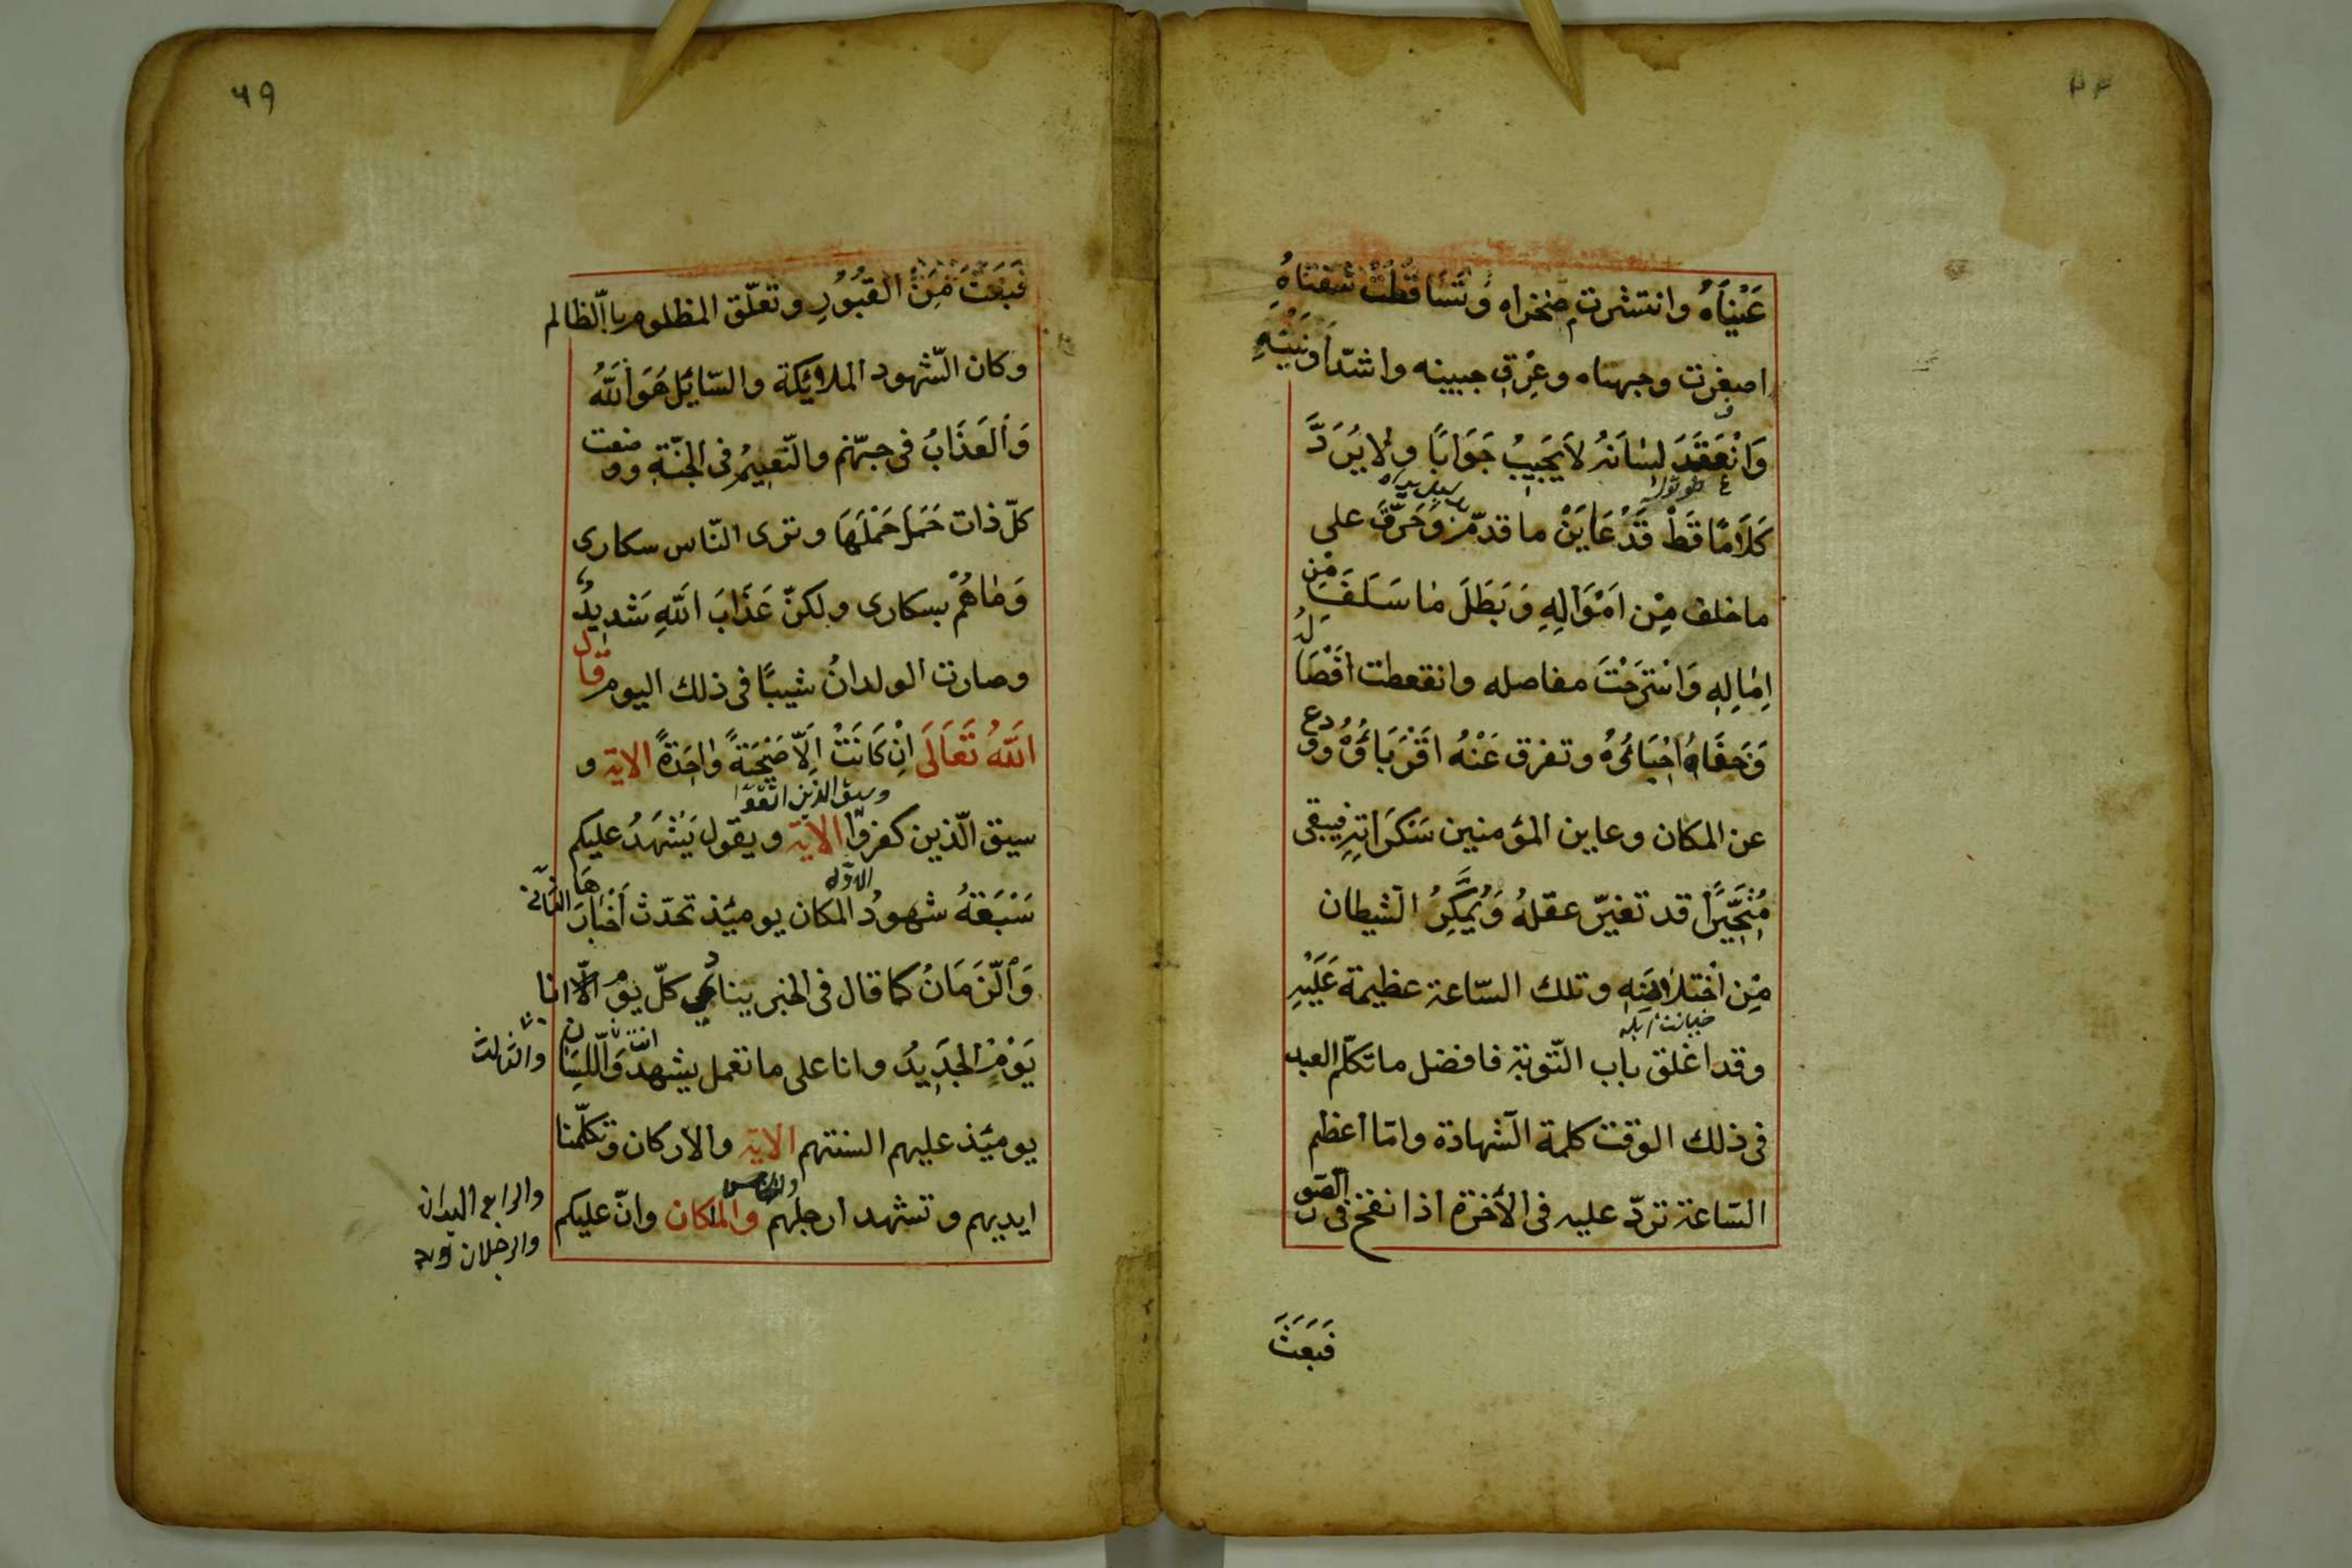 عَيْنَاهُ وانتشرت منخراه وَتَسَاقَطَتْ شَفَتَاهُ
اصفرت وجهناه وعرق جبينه واشتدّ
وَانْعَقَدَ لِسَانَهُ لاَ يَجِيبُ جَوَابًا ولا يَرُدَّ
كَلاَمًا قَطْ قَدْ عَايَنْ ما قدّم وَحَرَّقَ على
ما خلف مِن اَمْوَالِهِ وَبَطَلَ مَا سَلَفَ مِن
اِمَالِهِ وَاسْتَرَخْتَ مفاصله وانقعطت اَفْضَالُهُ
وَجَفَاهُ اَحِبَائُهُ وتفرق عَنْهُ اَقْرَبَاؤُهُ وودع
عن المكان وعاين المؤمنين سَكَرَاتِهِ فيبقى
مُتَحَيِّرًا قد تغيّر عقلهُ وَيُمَكِّنُ الشيطان
مِن اختلاصِهِ وتلك السّاعة عظيمة عَلَيْهِ
وقد اغلق باب التّوبة فافضل ما تكلّم العبد
فى ذلك الوقت كلمة الشهادة وامّا اعظم
السّاعة تردّ عليه فى الأخرة اذا نفخ فى الصّور
فَبَعَثَ
٦٩
فَبَعَثَ مَنْ القبُوُرِ وتعلّق المظلوم باالظالم
وكان الشّهود الملائكة والسّايل هَوَ اللّهُ
وَالعَذَابُ فى جهنّم والنّعيم فى الجنّة ووضعت
كلّ ذات حَمَل حَمْلَهَا وترى النّاس سكارى
وَمَا هُمْ بسكارى ولكنّ عَذَابَ اللّهِ شَديدٌ
وصارت الولدانُ شيبًا فى ذلك اليوم قال
اللّهُ تَعَالَى اِنْ كَانَتْ اِلاَّ صَيْحَةً وَاحِدَةً الاية و
وسيق الذين اتقوا
سيق الّذين كفروا الاية ويقول يَشْهَدُ عليكم
سَبْعَةُ شهودُ المكان يومئذ تحدّث أَخْبَارَهَا
الاوّل
الثانى
وَالزَّمَانُ كما قال فى الخبر ينادى كلّ يوم الاّ انا
يَوْمُ الجَدِيدُ وانا على ما تعمل يشهد وَاللِّسَان
انت
والثالث
يومئذ عليهم السنتهم الاية والاركان وتكلّمنا
ايديهم وتشهد ارجلهم والمكان وانّ عليكم
والخامس
والرابع اليدان
والرجلان